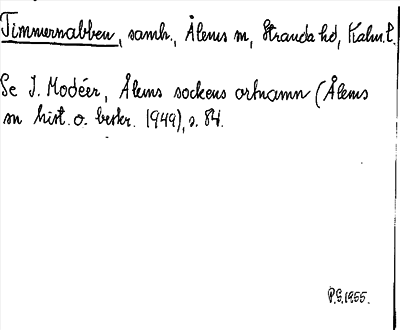 Timmernabben, samh., Ålems sn, Stranda hd, Kalm. l.
Se I. Modéer, Ålems sockens ortnamn (Ålems
sn hist. o. beskr. 1949), s. 84.
P.G. 1955.